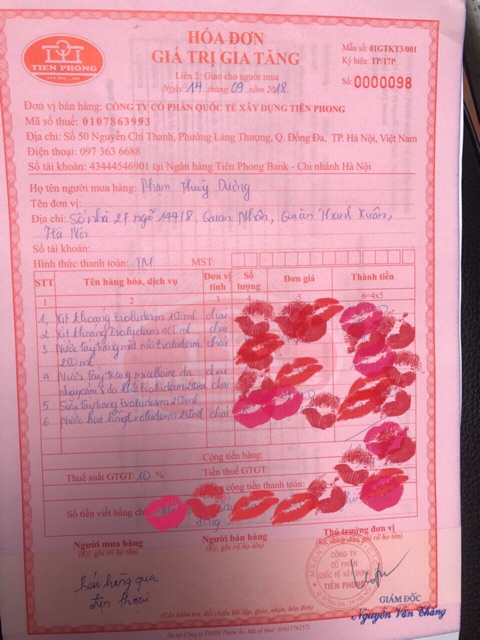 TIEN PHONG
HÓA ĐƠN
GIÁ TRỊ GIA TĂNG
Liên 2: Giao cho người mua
Ngày 14 tháng 09 năm 2018
Mẫu số: 01GTKT3/001
Ký hiệu: TP/17P
Số: 0000098
Đơn vị bán hàng: CÔNG TY CỔ PHẦN QUỐC TẾ XÂY DỰNG TIÊN PHONG
Mã số thuế: 0107863993
Địa chỉ: Số 50 Nguyễn Chí Thanh, Phường Láng Thượng, Q. Đống Đa, TP. Hà Nội, Việt Nam
Điện thoại: 097 363 6688
Số tài khoản: 43444546901 tại Ngân hàng Tiên Phong Bank - Chi nhánh Hà Nội
Họ tên người mua hàng: Phạm Thùy Dương
Tên đơn vị:
Địa chỉ: Số nhà 27 ngõ 144/8, Quan Nhân, Quận Thanh Xuân,
Hà Nội
Số tài khoản:
Hình thức thanh toán: TM MST:
STT Tên hàng hóa, dịch vụ Đơn vị tính Số lượng Đơn giá Thành tiền
1 2 3 4 5 6=4x5
1, Xịt khoáng Evoluderm 150ml chai
2 Xịt khoáng Evoluderm 400ml
3 Nước tẩy trang mắt môi Evoluderm chai
250 ml
4 Nước tẩy trang micellaire da chai
nhạy cảm & da khô Evoluderm 250ml
5 Sữa tẩy trang Evoluderm 250ml chai
6 Nước hoa hồng Evoluderm 250ml chai
Cộng tiền hàng:
Thuế suất GTGT: 10 % Tiền thuế GTGT:
Tổng cộng tiền thanh toán:
Số tiền viết bằng
đồng
Người mua hàng Người bán hàng Thủ trưởng đơn vị
(Ký, ghi rõ họ tên) (Ký, ghi rõ họ tên)
Bán hàng qua
điện thoại
CÔNG TY
CỔ PHẦN
QUỐC TẾ XÂY DỰNG
TIÊN PHONG
GIÁM ĐỐC
Nguyễn Văn Thắng
(Cần kiểm tra, đối chiếu khi lập, giao, nhận, hóa đơn)